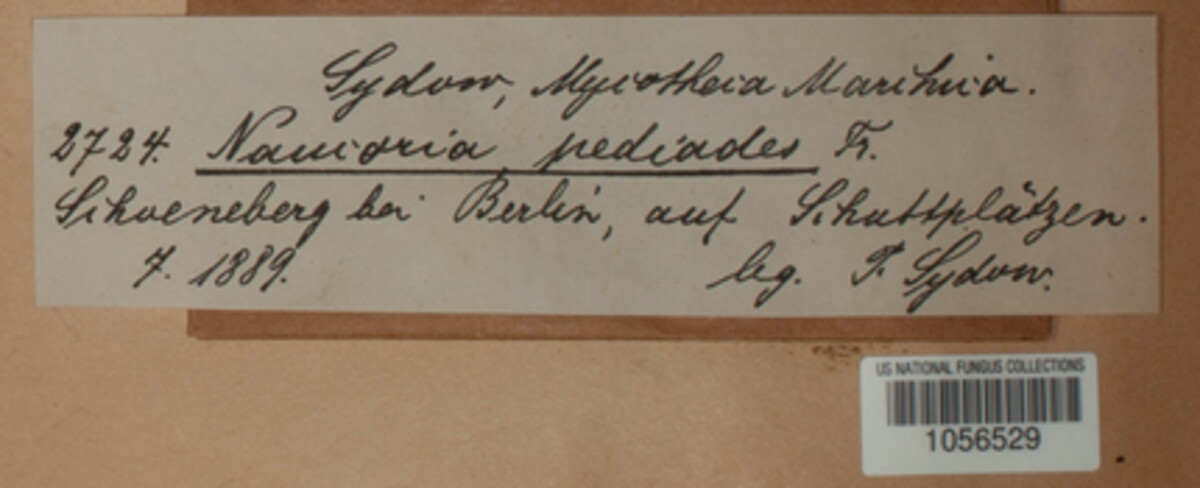 Sydow, Mycotheca Marchica.
2724. Naucoria pediades Fr.
Schoeneberg bei Berlin, auf Schuttplätzen.
7. 1889. leg. P. Sydow.
US NATIONAL FUNGUS COLLECTIONS
1056529